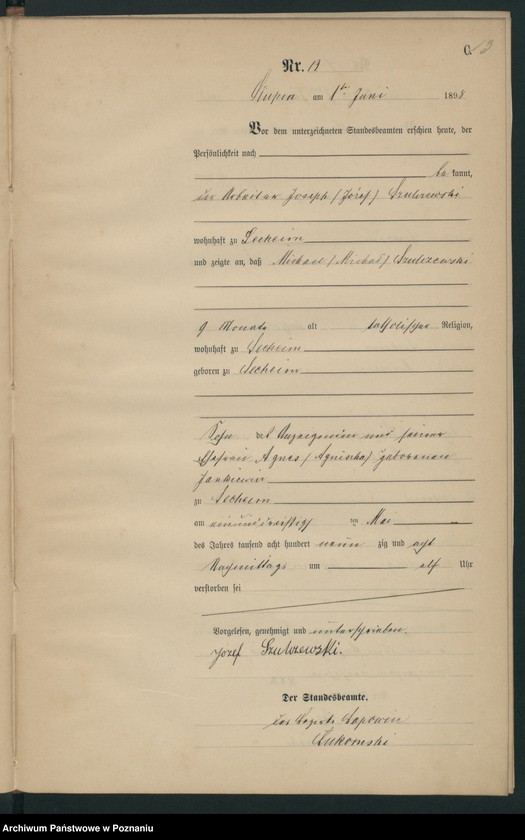 C.
Nr. 13
Slupia am 1ten Juni 1898
Vor dem unterzeichneten Standesbeamten erschien heute, der
Persönlichkeit nach
be kannt,
der Arbeiter Joseph (Józef) Szulczewski
wohnhaft zu Secheim
und zeigte an, daß Michael (Michał) Szulczewski
9 Monate alt katholischer Religion,
wohnhaft zu Secheim
geboren zu Secheim
Sohn des Anzeigenden und seiner
Ehefrau Agnes (Agnieszka) geborenen
zu Secheim
am einunddreißigsten Mai
des Jahres tausend acht hundert neun zig und acht
Nachmittags um elf Uhr
verstorben sei
Vorgelesen, genehmigt und unterschrieben.
Józef Szulczewski.
Der Standesbeamte.
Archiwum Państwowe w Poznaniu